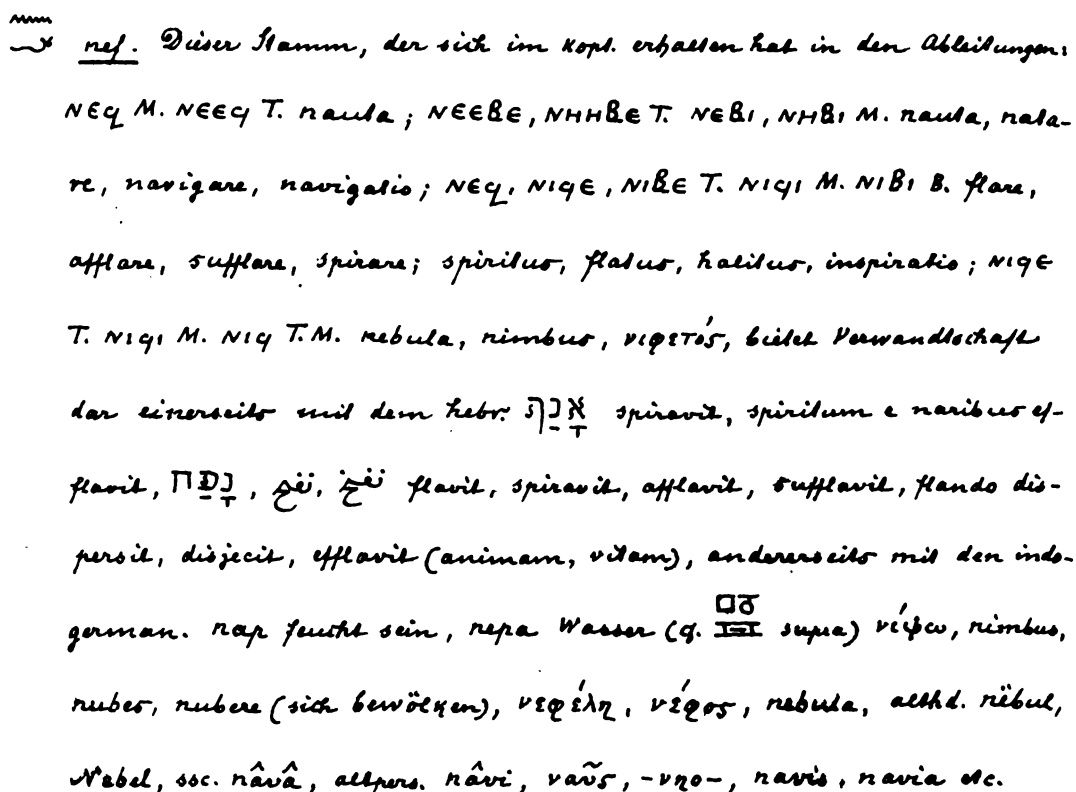 nef. Dieser Stamm, der sich im kopt. erhalten hat in den Ableitungen:
ⲛⲉϥ M. ⲛⲉⲉϥ T. nauta; ⲛⲉⲉⲃⲉ, ⲛⲏⲏⲃⲉ T. ⲛⲉⲃⲓ, ⲛⲏⲃⲓ M. nauta, nata-
re, navigare, navigatio; ⲛⲉϥ, ⲛⲓϥⲉ, ⲛⲓⲃⲉ T. ⲛⲓϥⲓ M. ⲛⲓⲃⲓ B. flare,
afflare, sufflare, spirare; spiritus, flatus, halitus, inspiratio; ⲛⲓϥⲉ
T. ⲛⲓϥⲓ M. ⲛⲓϥ T.M. nebula, nimbus, νιφετός, bietet Verwandtschaft
dar einerseits mit dem hebr. אָנַף spiravit, spiritum e naribus ef-
flavit, נָפַח, نفح, نفخ flavit, spiravit, afflavit, sufflavit, flando dis-
persit, disjecit, efflavit (animam, vitam), andererseits mit den indo-
german. nap feucht sein, nepa Wasser (cf. supra) νίφω, nimbus,
nubes, nubere (sich bewölken), νεφέλη, νέφος, nebula, althd. nëbul,
Nebel, ssc. nâvâ, altpers. nâvi, ναῦς, -νηο-, navis, navia etc.